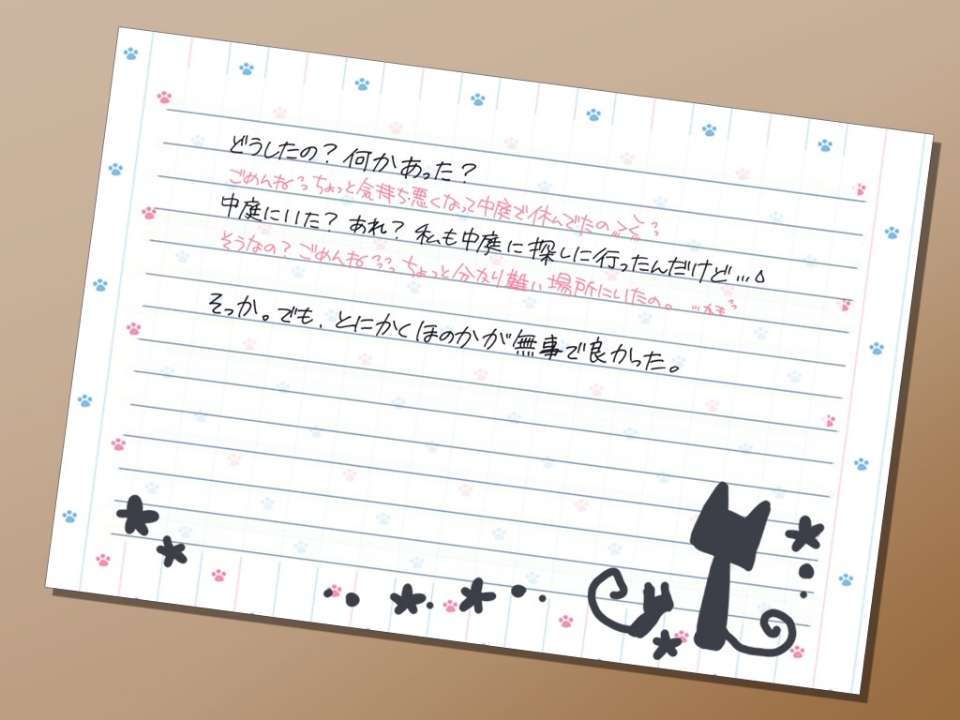 どうしたの？何かあった？
ごめんねっっちょっと気持ち悪くなって中庭で休んでたの
中庭にいた？あれ？私も中庭に探しに行ったんだけど…
そうなの？ごめんねっっっちょっと分かり難い場所にいたの。
そっか。でも、とにかくほのかが無事で良かった。